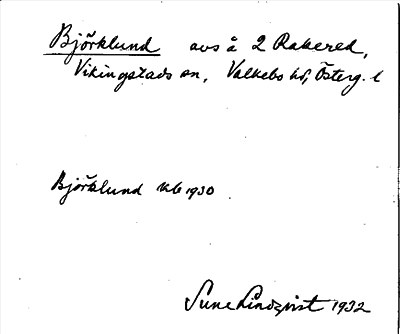 Björklund avs å 2 Rakered,
Vikingstads sn, Valkebo hd, Österg. l
Björklund kb 1930
Sune Lindqvist 1932